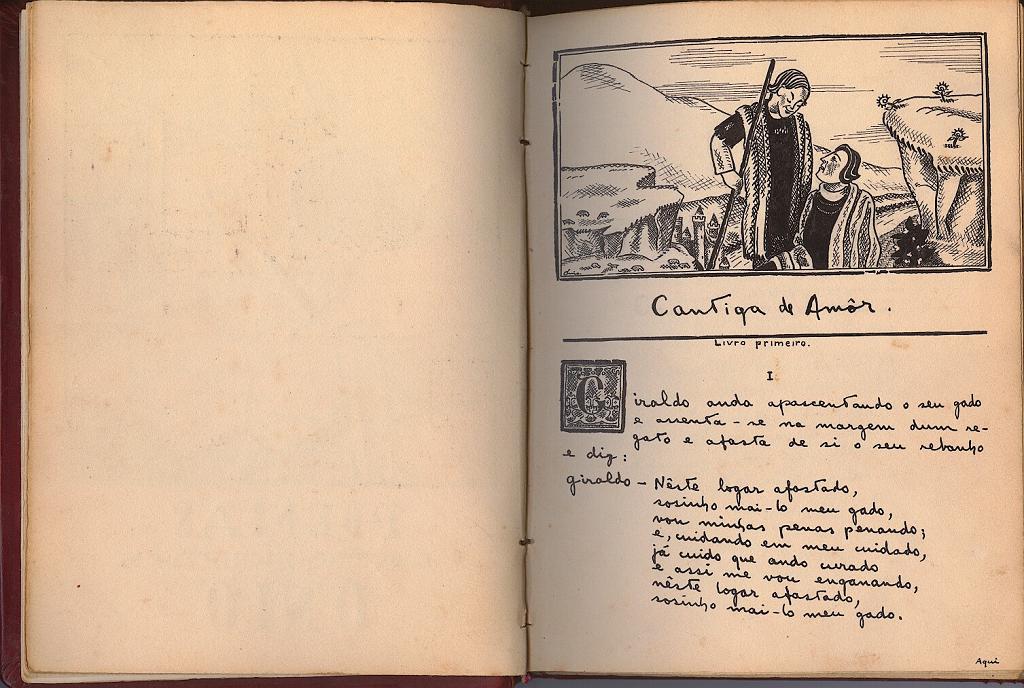 Cantiga de Amôr.
Livro primeiro.
I
Giraldo anda apascentando o seu gado
e assenta-se na margem dum re-
gato e afasta de si o seu rebanho
e diz:
giraldo – Nêste logar afastado,
sosinho mai-lo meu gado,
vou minhas penas penando;
e, cuidando em meu cuidado,
já cuido que ando curado
e assi me vou enganando,
nêste logar afastado,
sosinho mai-lo meu gado.
Aqui